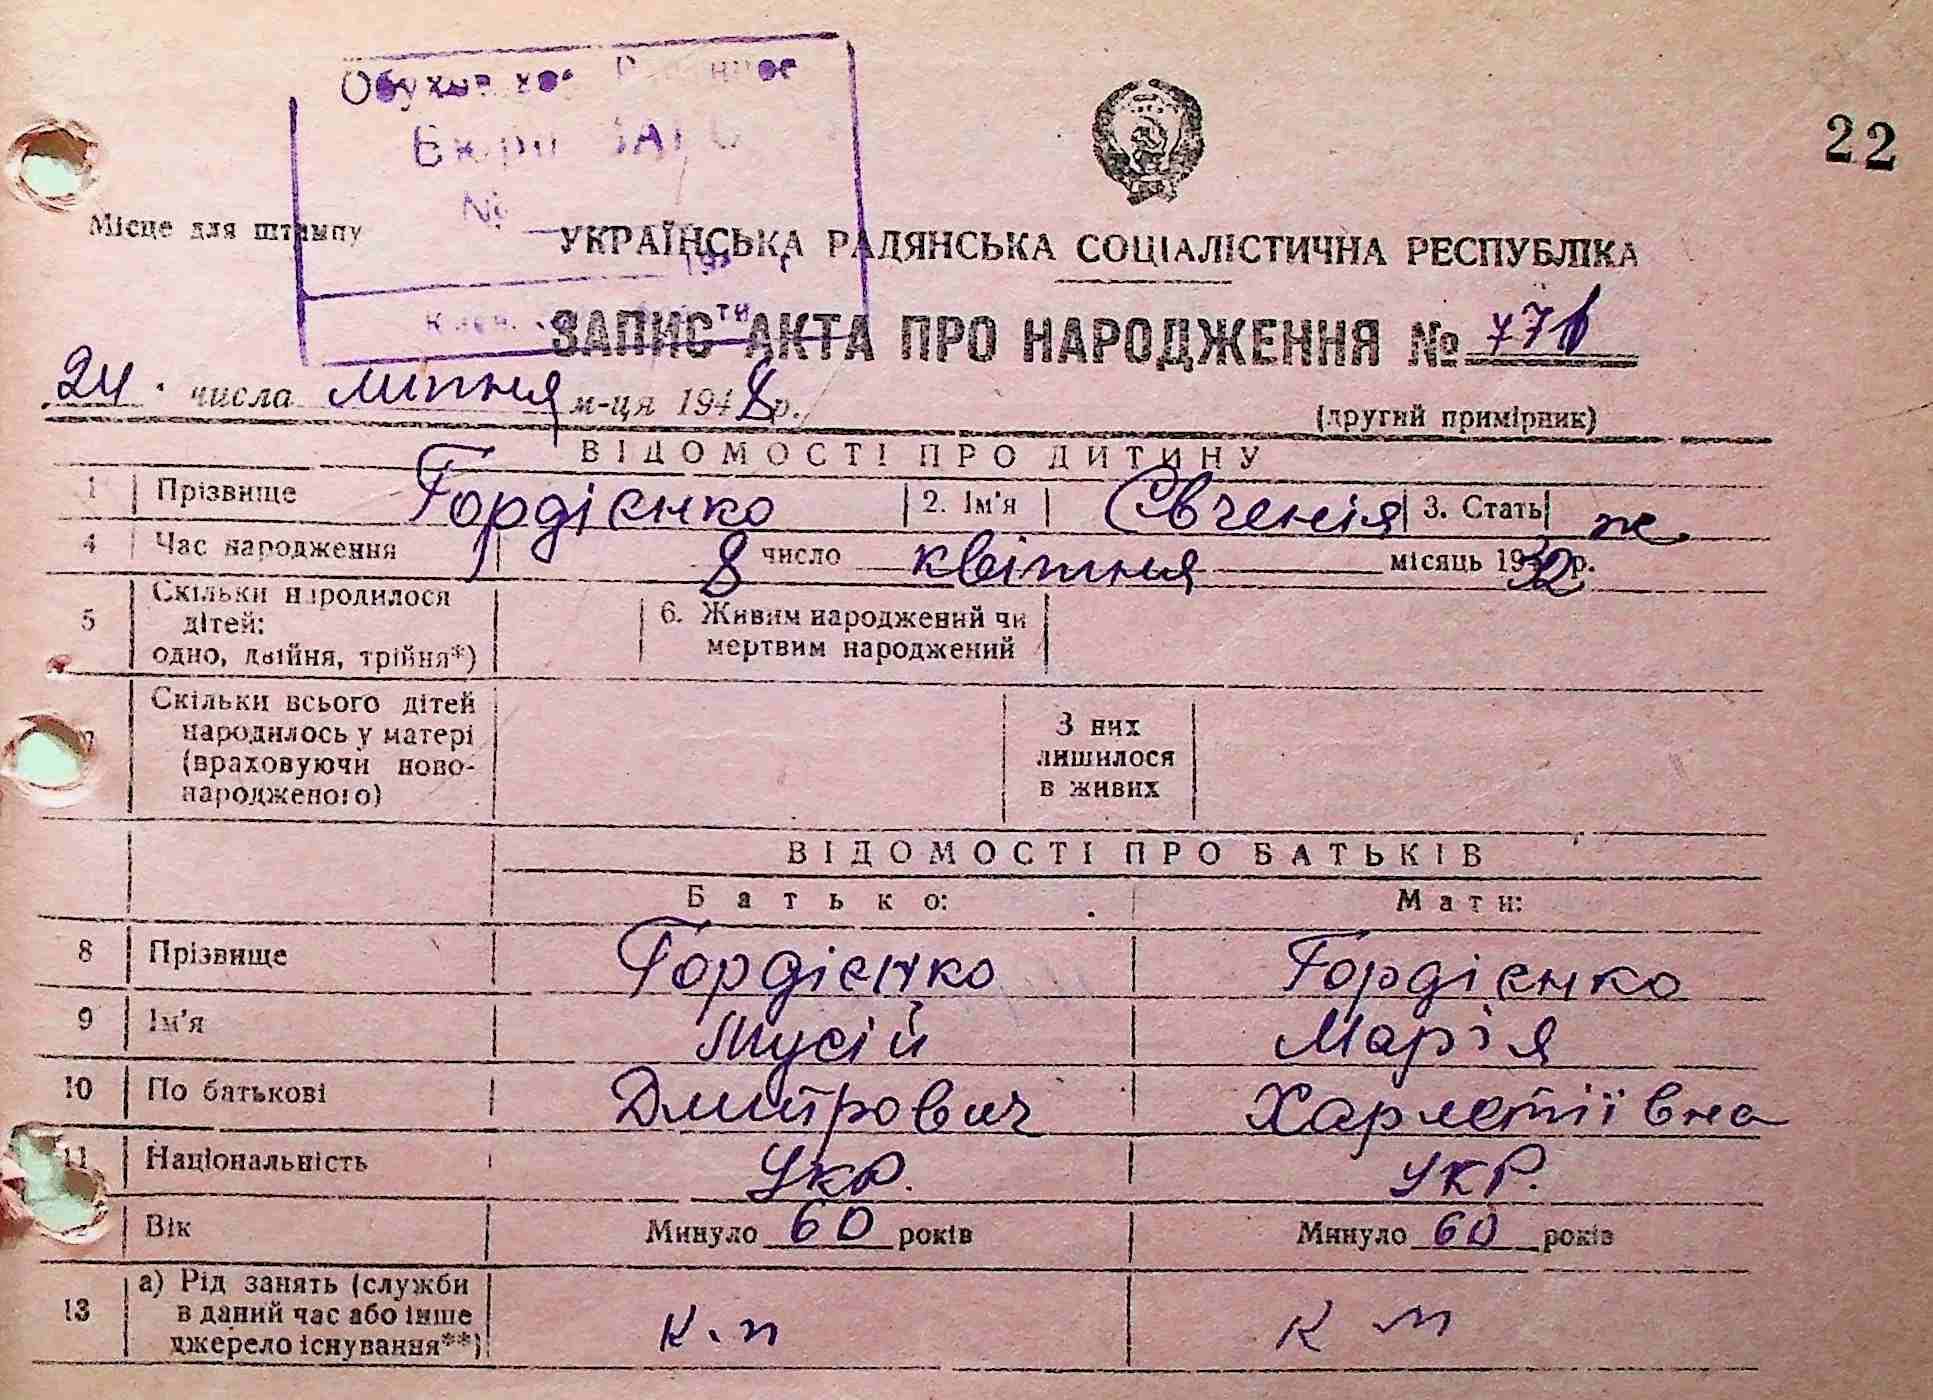 22
Місце для штампу
УКРАЇНСЬКА РАДЯНСЬКА СОЦІАЛІСТИЧНА РЕСПУБЛІКА
ЗАПИС АКТА ПРО НАРОДЖЕННЯ № 771
24. числа липня м-ця 1948 р.
(другий примірник)
ВІДОМОСТІ ПРО ДИТИНУ
1 Прізвище Гордієнко 2. Ім'я Євгенія 3. Стать ж.
4 Час народження 8 число квітня місяць 1932 р.
5 Скільки народилося дітей: одно, двійня, трійня*) 6. Живим народжений чи мертвим народжений
Скільки всього дітей народилось у матері (враховуючи новонародженого) З них лишилося в живих
ВІДОМОСТІ ПРО БАТЬКІВ
Батько: Мати:
8 Прізвище Гордієнко Гордієнко
9 Ім'я Мусій Марія
10 По батькові Дмитрович Харлетіївна
11 Національність Укр. Укр.
Вік Минуло 60 років Минуло 60 років
13 а) Рід занять (служби в даний час або інше джерело існування**) к.п